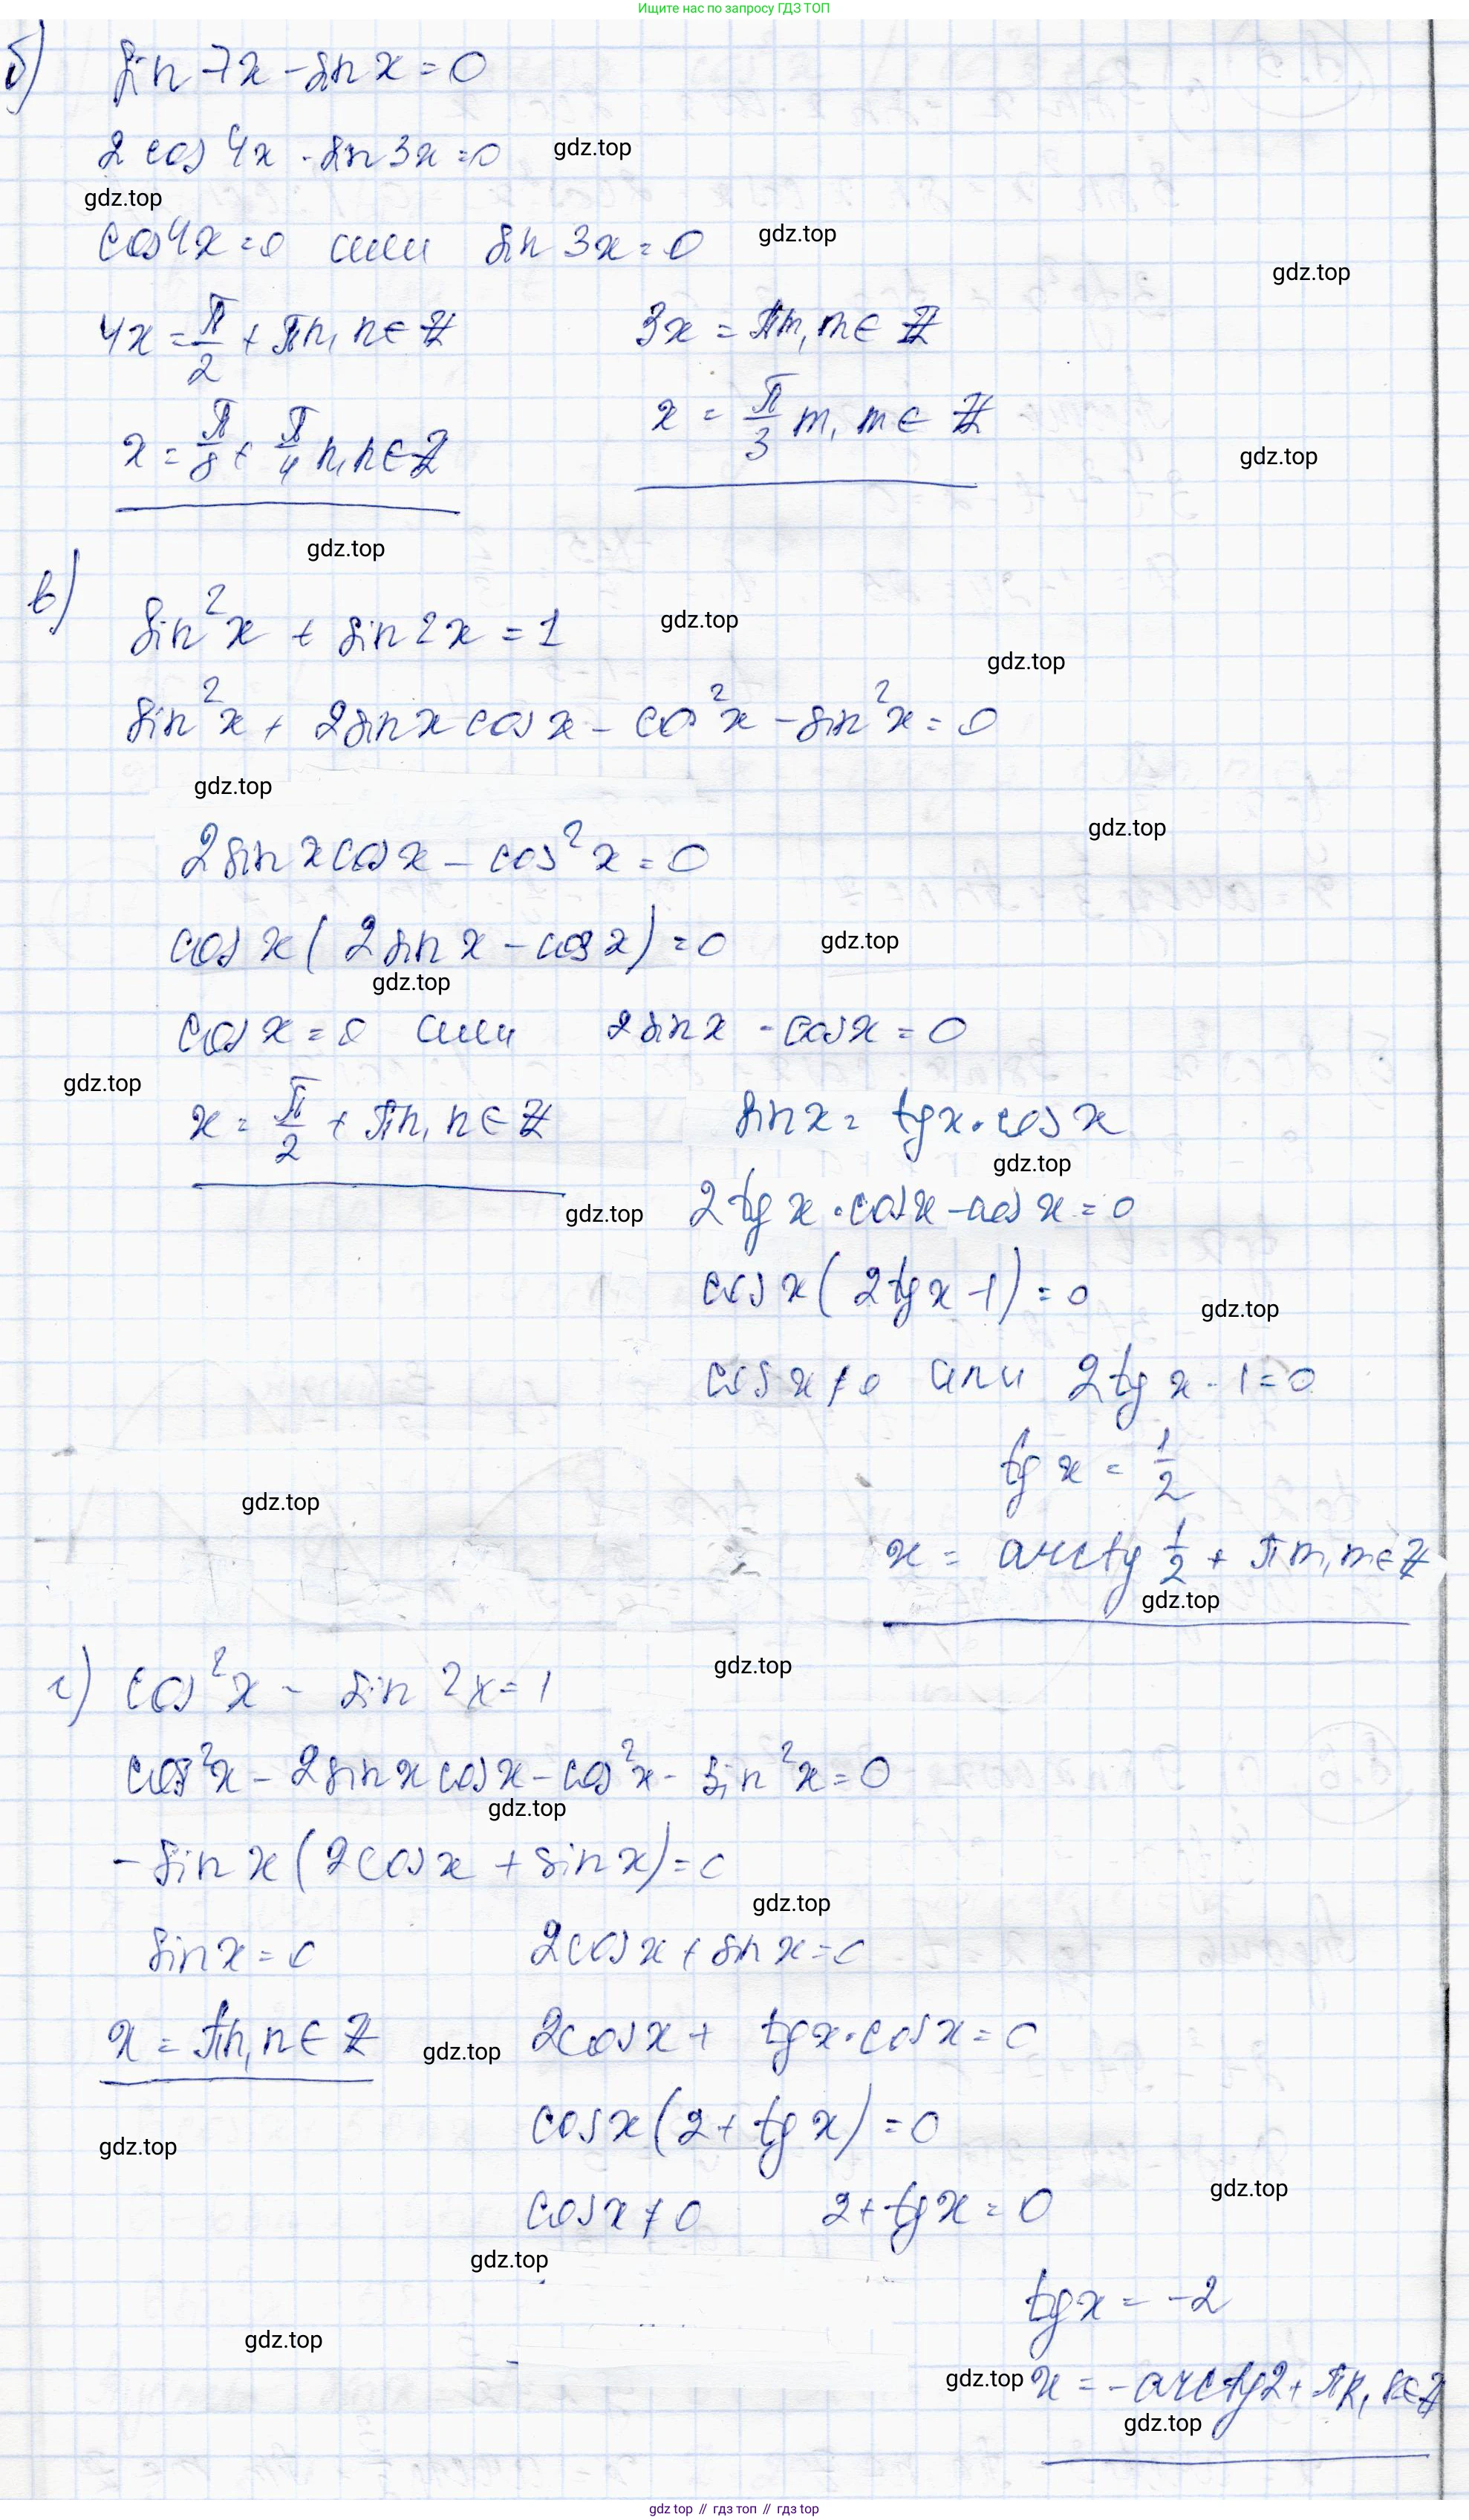 Ищите нас по запросу ГДЗ ТОП
б) sin 7x - sin x = 0
2 cos 4x · sin 3x = 0 gdz.top
gdz.top
cos 4x = 0 или sin 3x = 0 gdz.top
gdz.top
4x = π/2 + πn, n ∈ Z 3x = πm, m ∈ Z
x = π/8 + π/4 n, n ∈ Z x = π/3 m, m ∈ Z
gdz.top
gdz.top
в) sin²x + sin 2x = 1 gdz.top
gdz.top
sin²x + 2 sin x cos x - cos²x - sin²x = 0
gdz.top
gdz.top
2 sin x cos x - cos²x = 0
cos x (2 sin x - cos x) = 0 gdz.top
gdz.top
cos x = 0 или 2 sin x - cos x = 0
gdz.top
x = π/2 + πn, n ∈ Z sin x = tg x · cos x
gdz.top
gdz.top 2 tg x · cos x - cos x = 0
cos x (2 tg x - 1) = 0 gdz.top
cos x ≠ 0 или 2 tg x - 1 = 0
tg x = 1/2
gdz.top
x = arctg 1/2 + πm, m ∈ Z
gdz.top
г) cos²x - sin 2x = 1 gdz.top
cos²x - 2 sin x cos x - cos²x - sin²x = 0
gdz.top
- sin x (2 cos x + sin x) = 0
gdz.top
sin x = 0 2 cos x + sin x = 0
x = πn, n ∈ Z gdz.top 2 cos x + tg x · cos x = 0
cos x (2 + tg x) = 0
gdz.top
gdz.top
cos x ≠ 0 2 + tg x = 0
gdz.top
tg x = -2
gdz.top
gdz.top x = - arctg 2 + πk, k ∈ Z
gdz.top
gdz top // гдз топ // гдз top